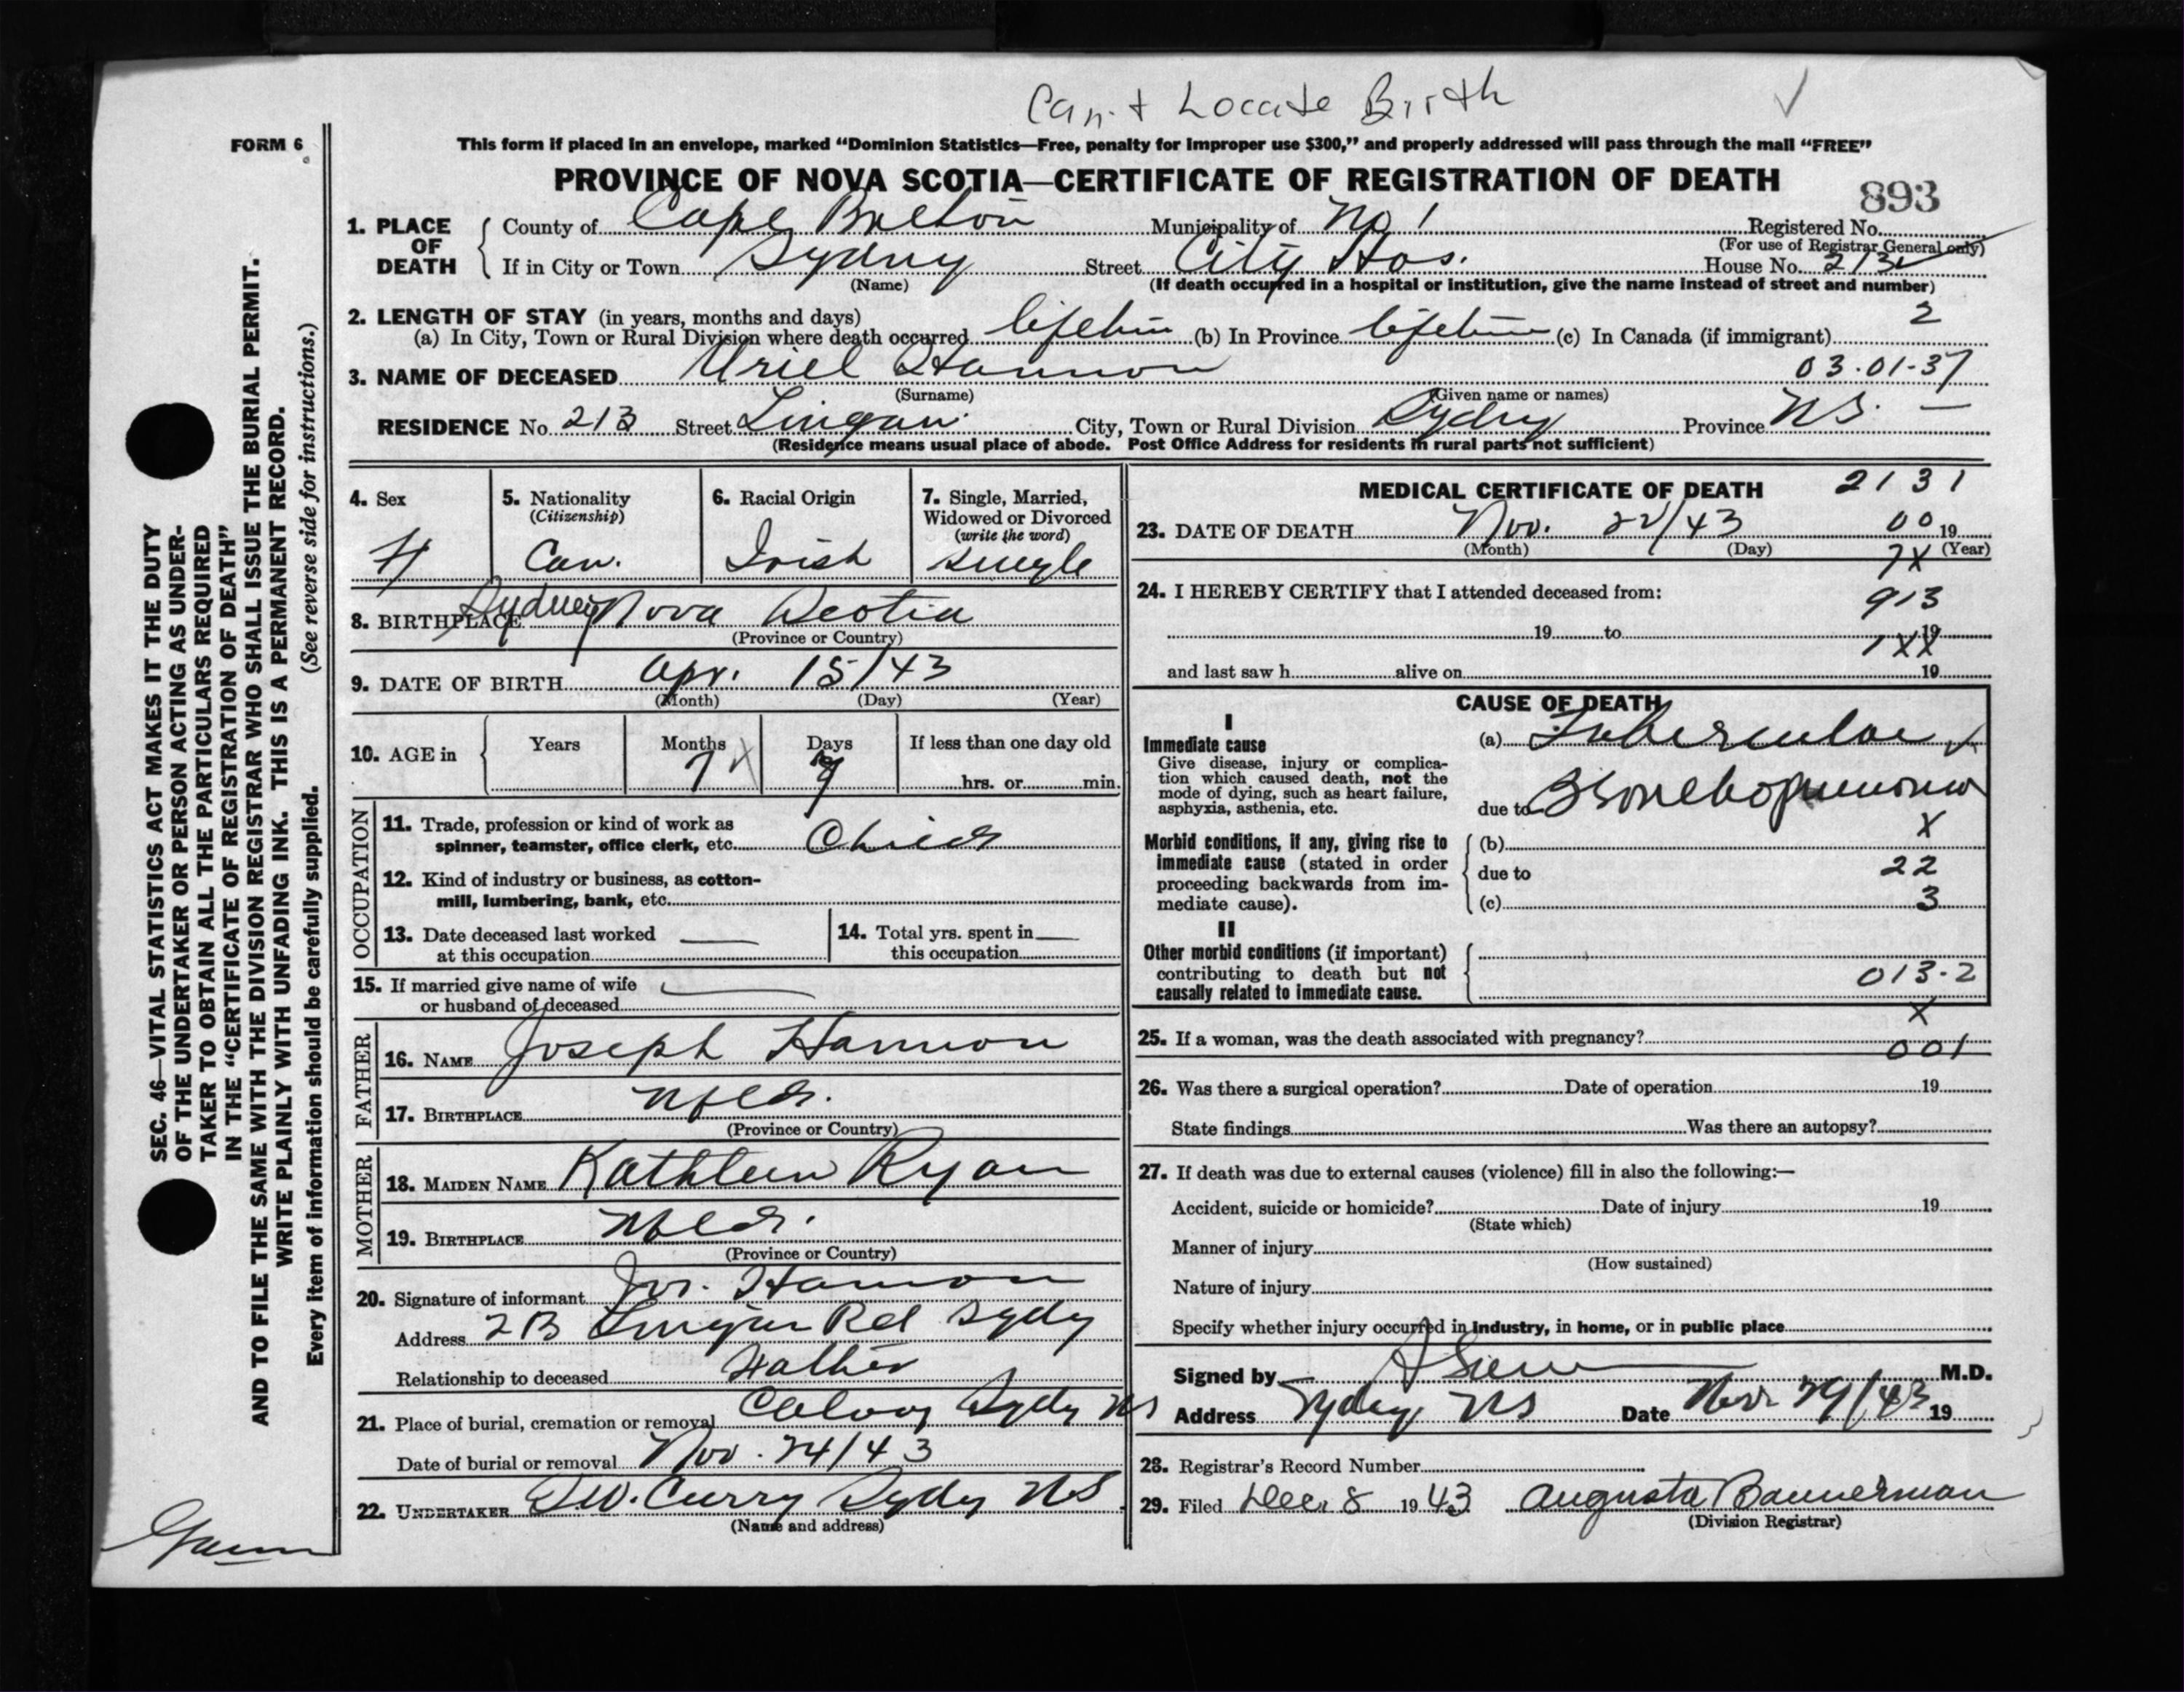 Can't Locate Birth
FORM 6
This form if placed in an envelope, marked "Dominion Statistics—Free, penalty for improper use $300," and properly addressed will pass through the mail "FREE"
PROVINCE OF NOVA SCOTIA—CERTIFICATE OF REGISTRATION OF DEATH
893
1. PLACE OF DEATH
County of Cape Breton Municipality of No 1 Registered No.
(For use of Registrar General only)
If in City or Town Sydney Street City Hos. House No. 213
(Name) (If death occurred in a hospital or institution, give the name instead of street and number)
2. LENGTH OF STAY (in years, months and days) 2
(a) In City, Town or Rural Division where death occurred lifetim (b) In Province lifetim (c) In Canada (if immigrant)
3. NAME OF DECEASED Uriel Hannon 03-01-37
(Surname) (Given name or names)
RESIDENCE No 213 Street Lingan City, Town or Rural Division Sydny Province NS. —
(Residence means usual place of abode. Post Office Address for residents in rural parts not sufficient)
4. Sex
F
5. Nationality
(Citizenship)
Can.
6. Racial Origin
Irish
7. Single, Married,
Widowed or Divorced
(write the word)
single
8. BIRTHPLACE Sydney Nova Scotia
(Province or Country)
9. DATE OF BIRTH Apr. 15/43
(Month) (Day) (Year)
10. AGE in
Years Months Days If less than one day old
7 X
hrs. or min.
OCCUPATION
11. Trade, profession or kind of work as
spinner, teamster, office clerk, etc. Child
12. Kind of industry or business, as cotton-
mill, lumbering, bank, etc.
13. Date deceased last worked —
at this occupation
14. Total yrs. spent in —
this occupation
15. If married give name of wife —
or husband of deceased
FATHER
16. NAME Joseph Hannon
17. BIRTHPLACE Nfld.
(Province or Country)
MOTHER
18. MAIDEN NAME Kathleen Ryan
19. BIRTHPLACE Nfld.
(Province or Country)
20. Signature of informant Jos. Hannon
Address 213 Lingan Rd Sydy
Relationship to deceased Father
21. Place of burial, cremation or removal Sydy NS
Date of burial or removal Nov. 24/43
22. UNDERTAKER Curry Sydy NS
(Name and address)
MEDICAL CERTIFICATE OF DEATH 2131
23. DATE OF DEATH Nov. 22/43 00 19
(Month) (Day) (Year)
7X
24. I HEREBY CERTIFY that I attended deceased from: 913
19 to 19
1XX
and last saw h alive on 19
CAUSE OF DEATH
I
Immediate cause
Give disease, injury or complica-
tion which caused death, not the
mode of dying, such as heart failure,
asphyxia, asthenia, etc.
(a) Tubercular
due to Bronchopneumonia
X
Morbid conditions, if any, giving rise to
immediate cause (stated in order
proceeding backwards from im-
mediate cause).
(b)
due to 22
(c) 3
II
Other morbid conditions (if important)
contributing to death but not
causally related to immediate cause.
013-2
X
25. If a woman, was the death associated with pregnancy?
001
26. Was there a surgical operation? Date of operation 19
State findings Was there an autopsy?
27. If death was due to external causes (violence) fill in also the following:—
Accident, suicide or homicide? Date of injury 19
(State which)
Manner of injury
(How sustained)
Nature of injury
Specify whether injury occurred in industry, in home, or in public place
Signed by M.D.
Address Sydney NS Date Nov 29/43 19
28. Registrar's Record Number
29. Filed Dec. 8 1943 Augusta Bannerman
(Division Registrar)
SEC. 46—VITAL STATISTICS ACT MAKES IT THE DUTY
OF THE UNDERTAKER OR PERSON ACTING AS UNDER-
TAKER TO OBTAIN ALL THE PARTICULARS REQUIRED
IN THE "CERTIFICATE OF REGISTRATION OF DEATH"
AND TO FILE THE SAME WITH THE DIVISION REGISTRAR WHO SHALL ISSUE THE BURIAL PERMIT.
WRITE PLAINLY WITH UNFADING INK. THIS IS A PERMANENT RECORD.
Every item of information should be carefully supplied. (See reverse side for instructions.)